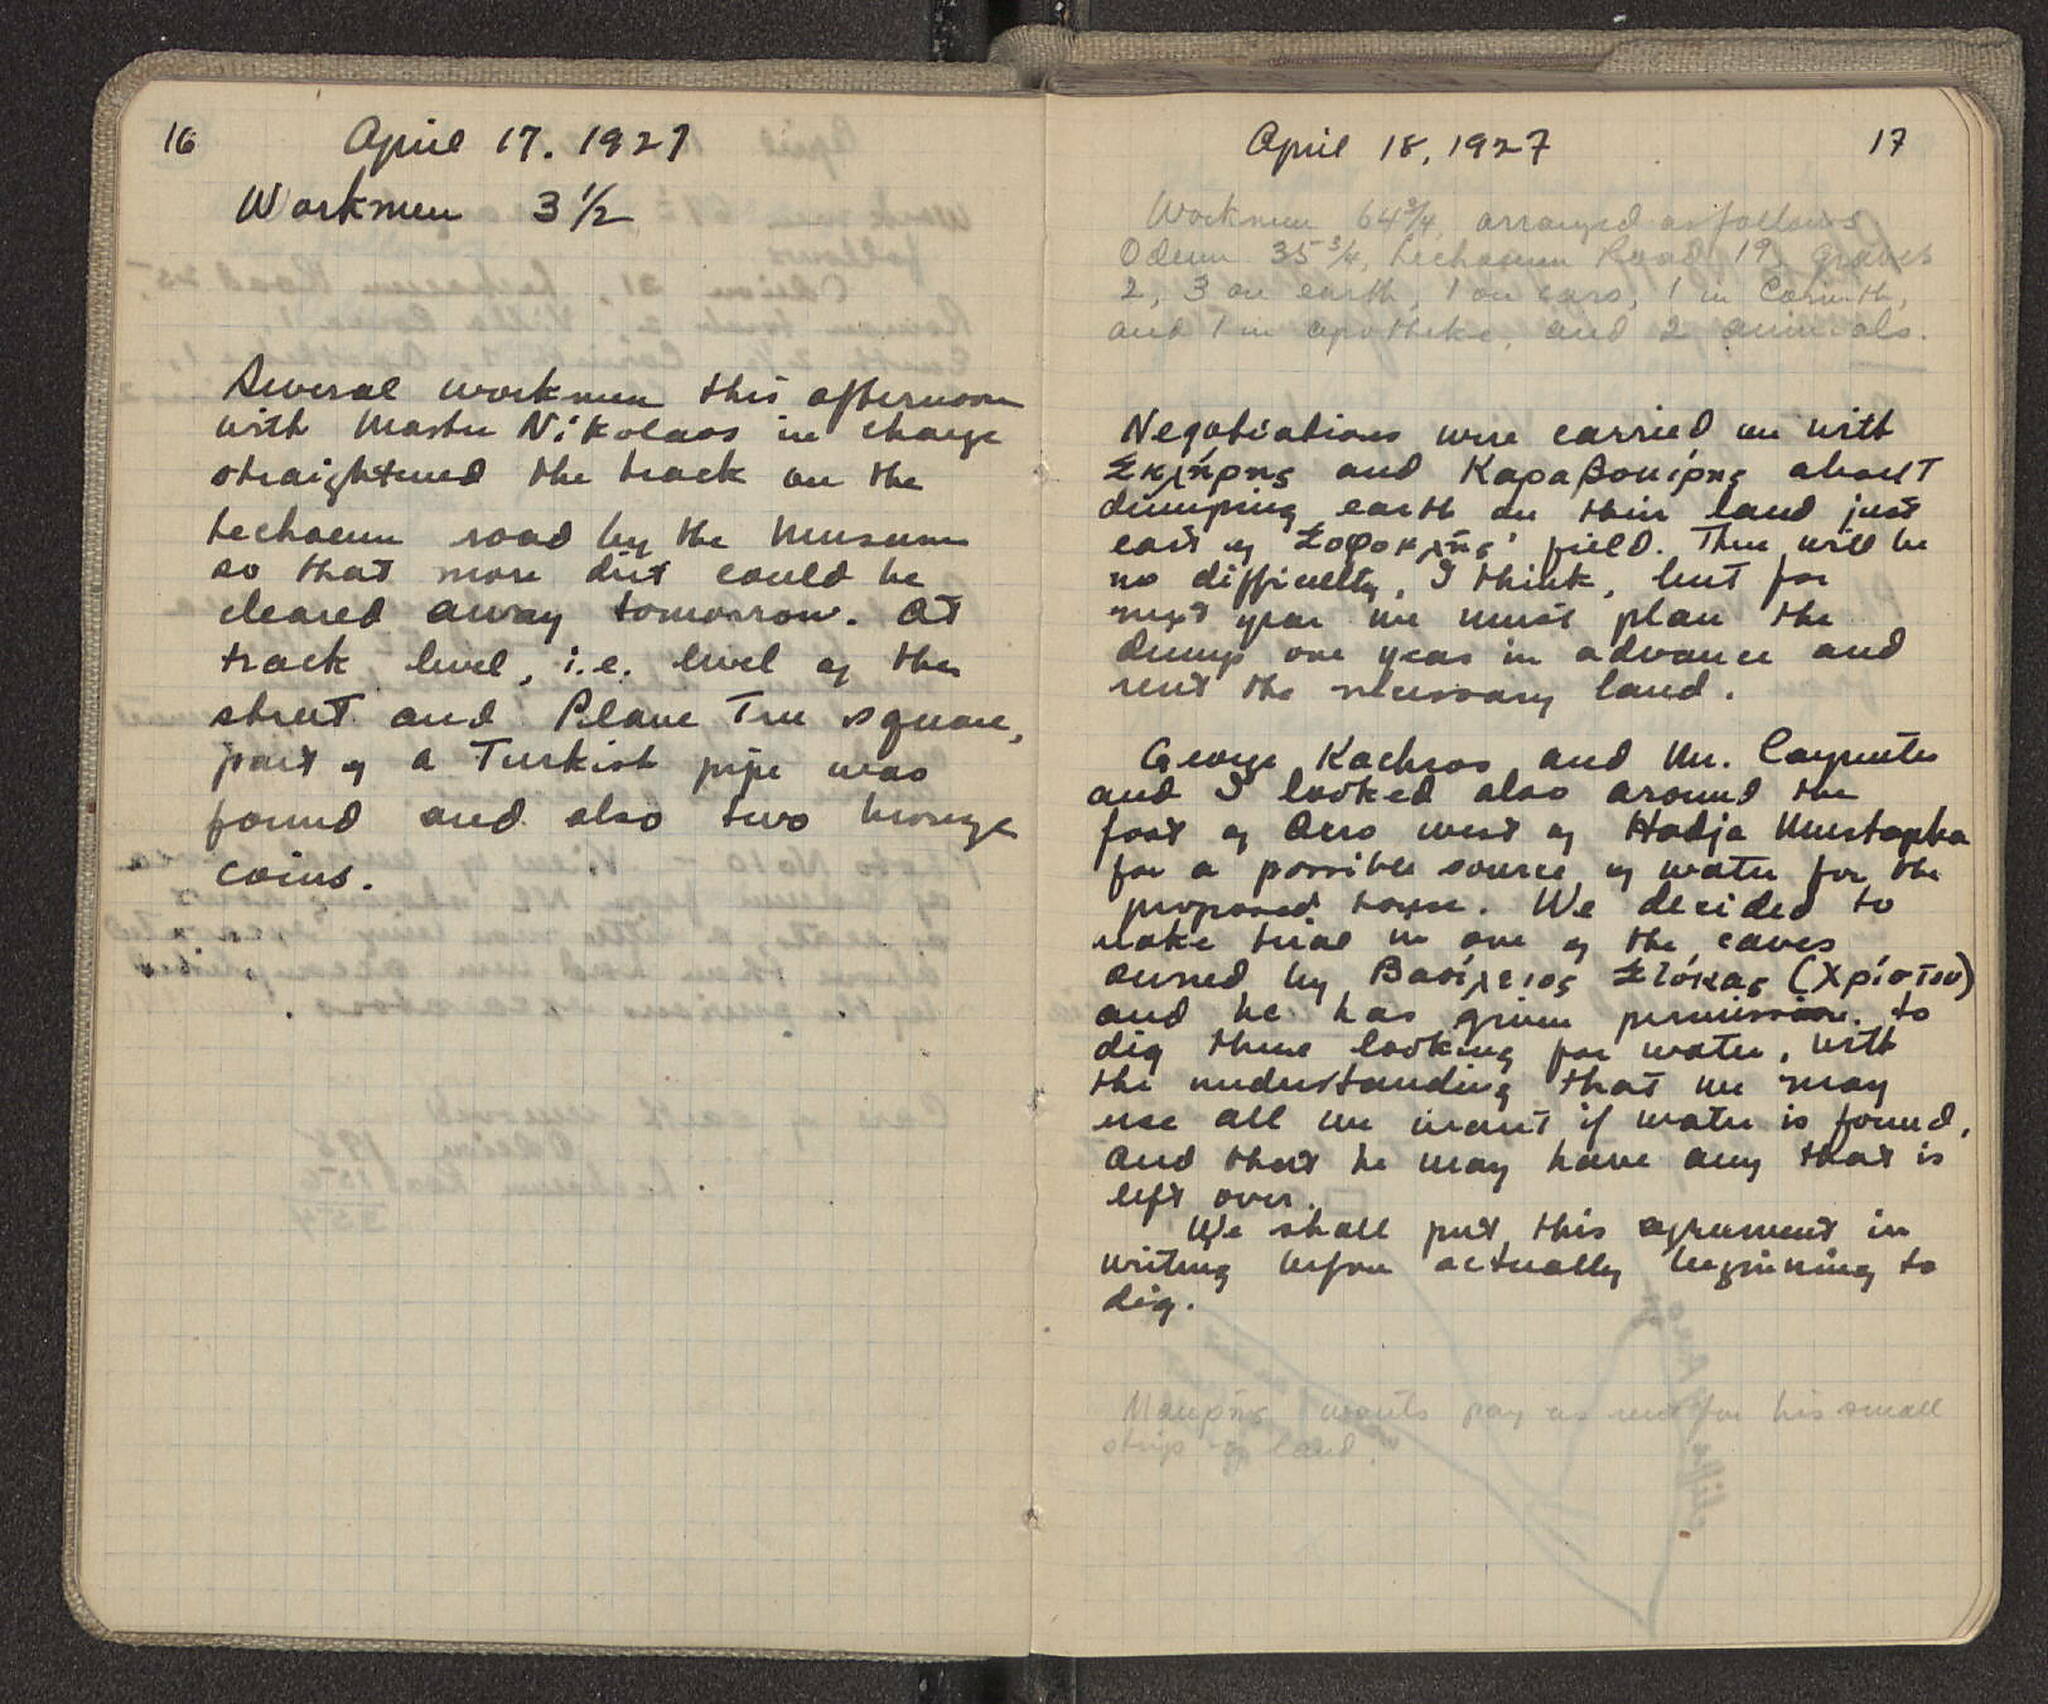 16
April 17. 1927
Workmen 3 1/2
Several workmen this afternoon
with Master Nikolaos in charge
straightened the track on the
Lechaeum road by the Museum
so that more dirt could be
cleared away tomorrow. At
track level, i.e. level of the
street and Plane Tree square,
part of a Turkish pipe was
found and also two bronze
coins.
April 18, 1927
17
Workmen 64 3/4, arranged as follows
Odeum 35 3/4, Lechaeum Road 19, graves
2, 3 on earth, 1 on cars, 1 in Corinth,
and 1 in apotheke, and 2 animals.
Negotiations were carried on with
Σκλήρης and Καραβουίρης about
dumping earth on their land just
east of Σοφοκλῆς' field. There will be
no difficulty, I think, but for
next year we must plan the
dump one year in advance and
rent the necessary land.
George Kachros and Mr. Carpenter
and I looked also around the
foot of Acro west of Hadja Mustapha
for a possible source of water for the
proposed house. We decided to
make trial in one of the caves
owned by Βασίλειος Στόκας (Χρίστου)
and he has given permission to
dig there looking for water, with
the understanding that we may
use all we want if water is found,
and that he may have any that is
left over.
We shall put this agreement in
writing before actually beginning to
dig.
wants pay as rent for his small
strip of land.